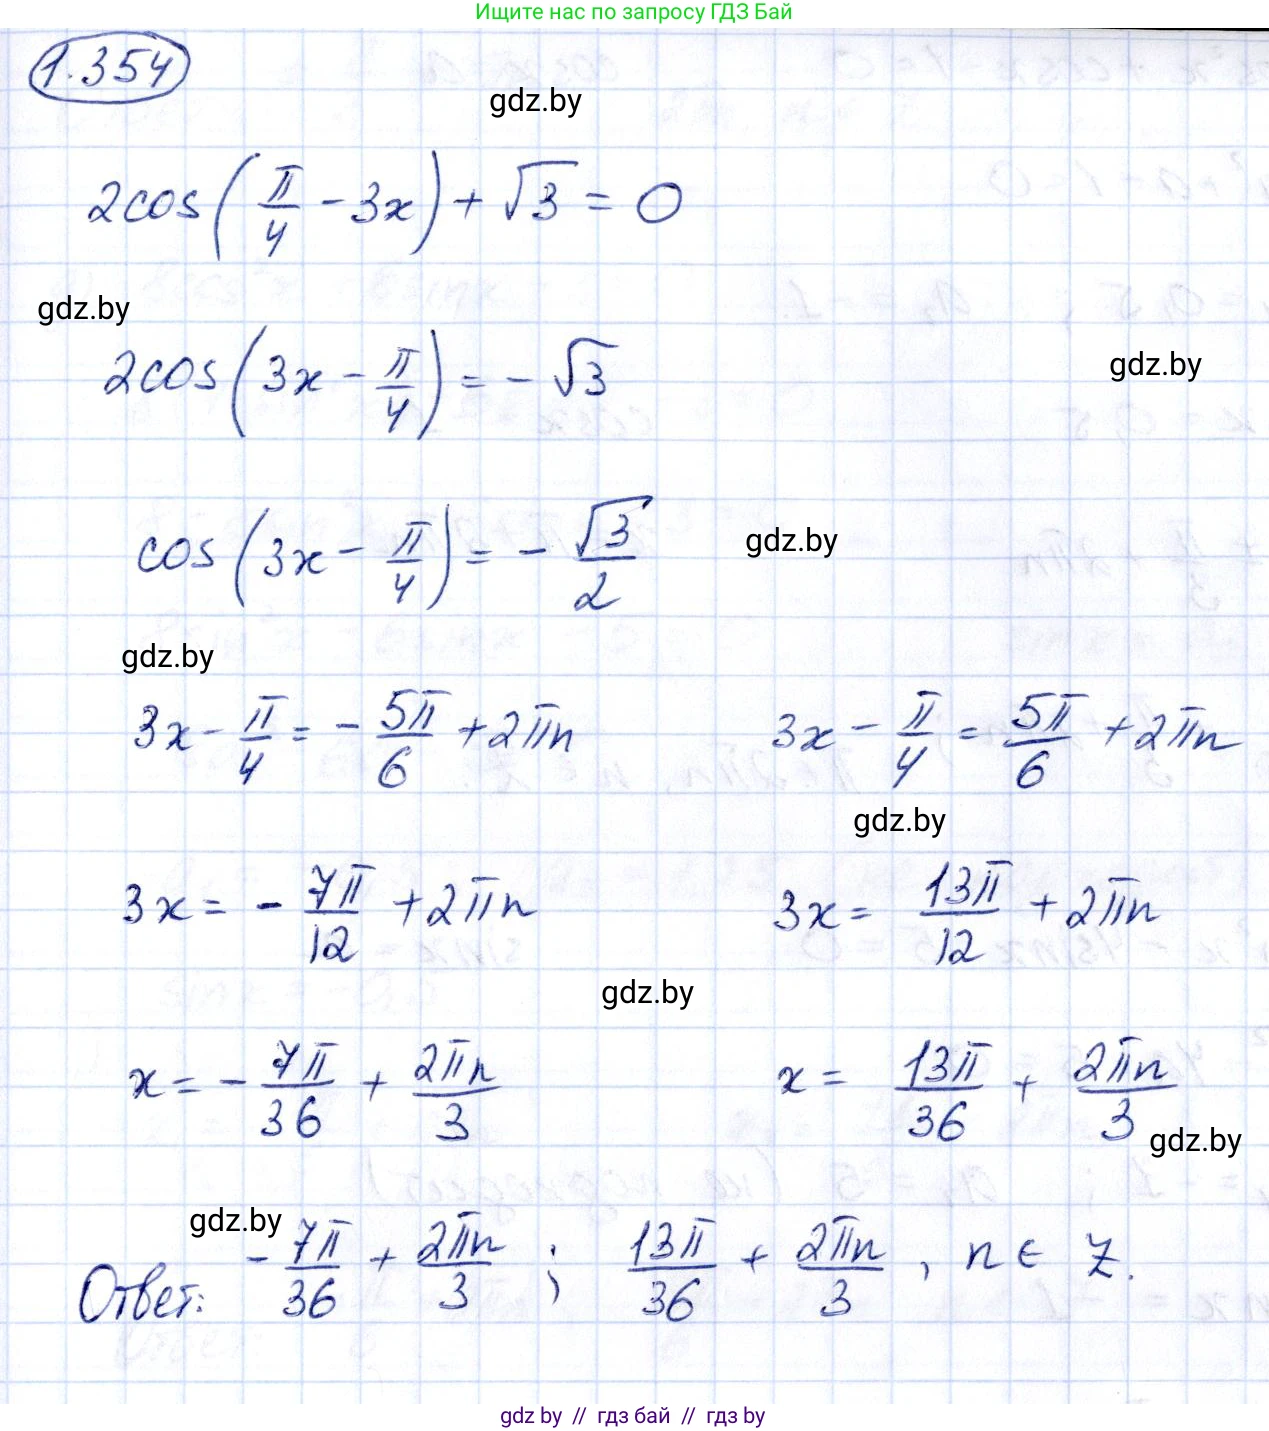 Ищите нас по запросу ГДЗ Бай
1.354
gdz.by
2cos(π/4 - 3x) + √3 = 0
gdz.by
2cos(3x - π/4) = - √3
gdz.by
cos(3x - π/4) = - √3/2
gdz.by
gdz.by
3x - π/4 = - 5π/6 + 2πn    3x - π/4 = 5π/6 + 2πn
gdz.by
3x = - 7π/12 + 2πn    3x = 13π/12 + 2πn
gdz.by
x = - 7π/36 + 2πn/3    x = 13π/36 + 2πn/3
gdz.by
gdz.by
Ответ: - 7π/36 + 2πn/3 ; 13π/36 + 2πn/3 , n ∈ Z.
gdz by // гдз бай // гдз by